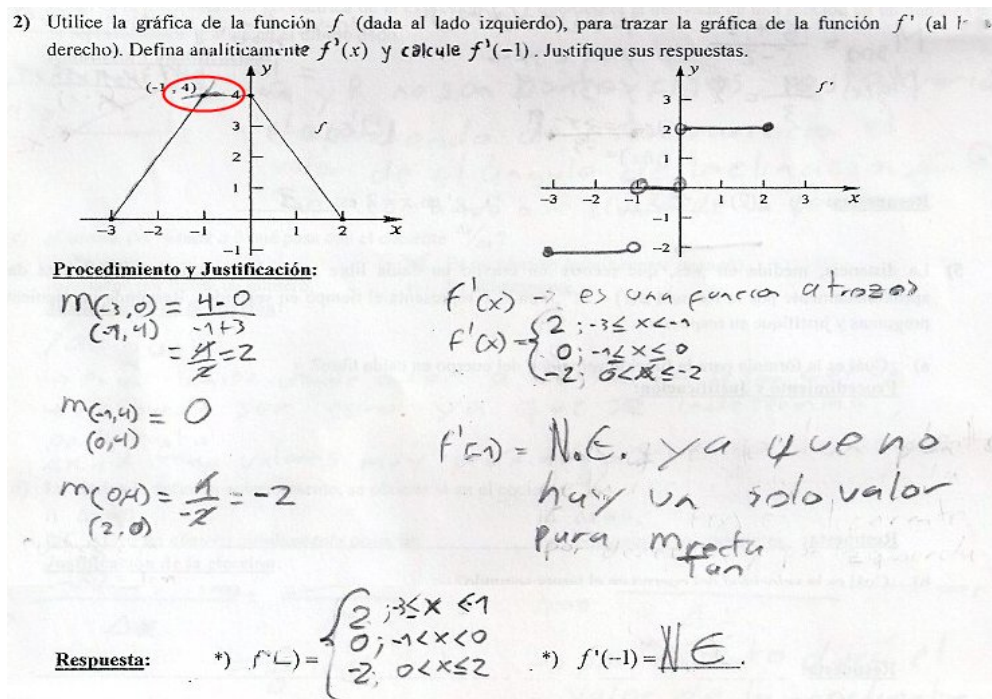 2) Utilice la gráfica de la función f (dada al lado izquierdo), para trazar la gráfica de la función f' (al
derecho). Defina analíticamente f'(x) y calcule f'(-1). Justifique sus respuestas.
(-1, 4)
y
4
3
2
1
f
-3 -2 -1 1 2 x
-1
y
f'
3
2
1
-3 -2 -1 1 2 3 x
-2
Procedimiento y Justificación:
m(-3,0) = 4-0
(-1,4) -1+3
= 4/2 = 2
m(-1,4) = 0
(0,4)
m(0,4) = 4/-2 = -2
(2,0)
f'(x) → es una función a trozos
f'(x) = { 2 ; -3≤ x < -1
0; -1≤ x ≤ 0
-2;
f'(-1) = N.E. ya que no
hay un solo valor
para m recta
tan
Respuesta: *) f'( ) = { 2 ; -3≤x <-1
0; -1<x<0
-2; 0<x≤2
*) f'(-1) = NE.